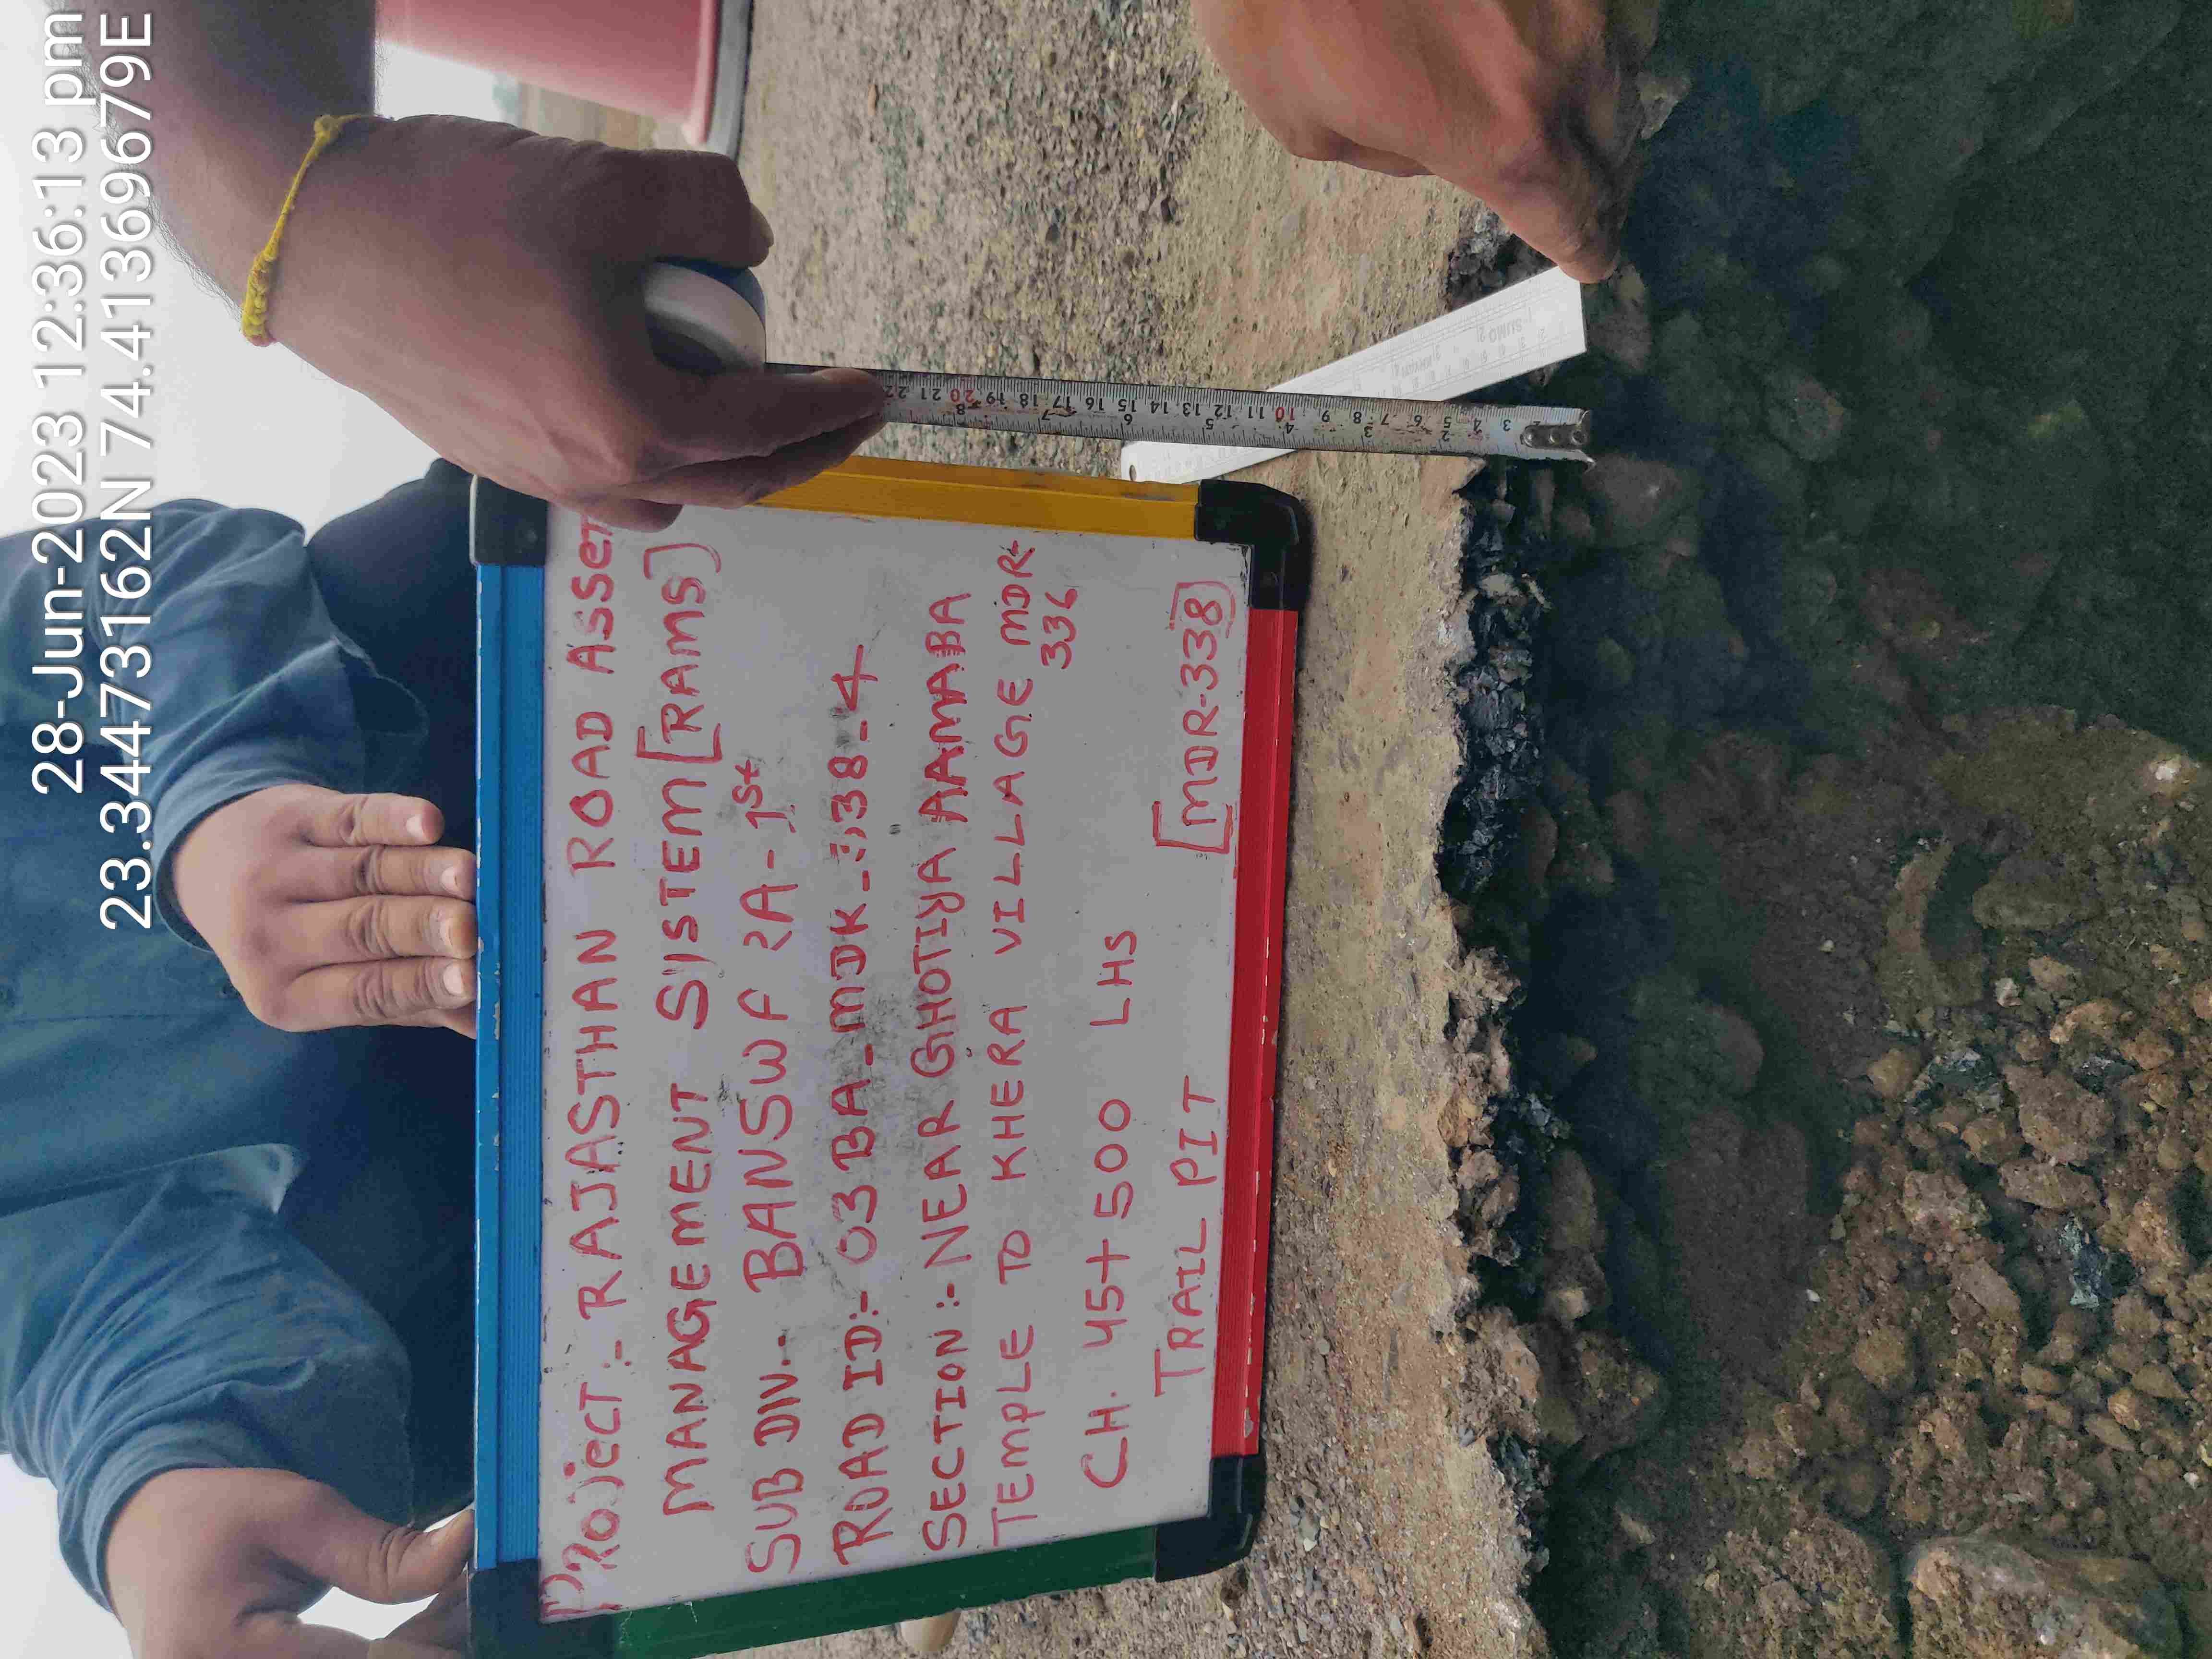 28-Jun-2023 12:36:13 pm
23.344731162N 74.413696679E
PROJECT :- RAJASTHAN ROAD ASSET
MANAGEMENT SYSTEM [RAMS]
SUB DIV..
ROAD ID:- 03 BA-MDR-338-4
SECTION :- NEAR GHOTIYA AAMABA
TEMPLE TO KHERA VILLAGE MDR
336
CH. 45+500 LHS
TRAIL PIT [MDR-338]
22 21 20 19 18 17 16 15 14 13 12 11 10 9 8 7 6 5 4 3
8 7 6 5 4 3 2
SUMO